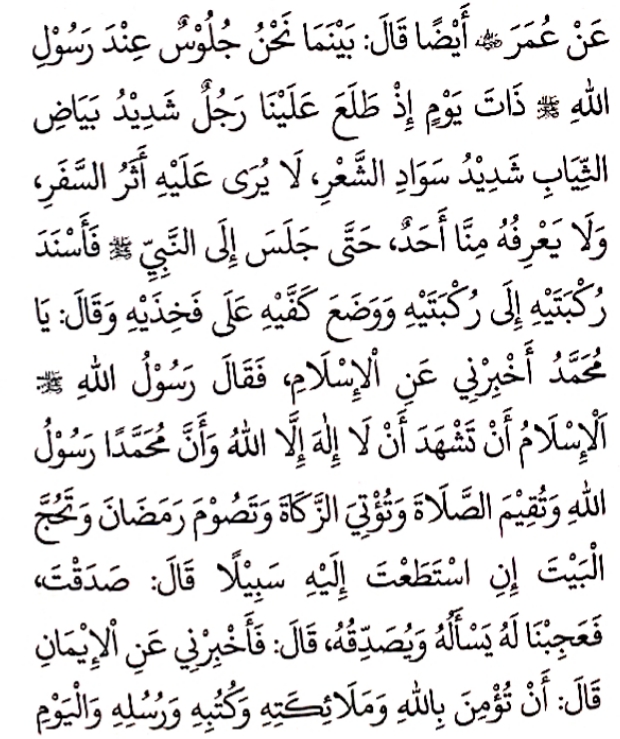 عَنْ عُمَرَ ﷜ أَيْضًا قَالَ: بَيْنَمَا نَحْنُ جُلُوْسٌ عِنْدَ رَسُوْلِ
اللهِ ﷺ ذَاتَ يَوْمٍ إِذْ طَلَعَ عَلَيْنَا رَجُلٌ شَدِيْدُ بَيَاضِ
الثِّيَابِ شَدِيْدُ سَوَادِ الشَّعْرِ، لَا يُرَى عَلَيْهِ أَثَرُ السَّفَرِ،
وَلَا يَعْرِفُهُ مِنَّا أَحَدٌ، حَتَّى جَلَسَ إِلَى النَّبِيِّ ﷺ فَأَسْنَدَ
رُكْبَتَيْهِ إِلَى رُكْبَتَيْهِ وَوَضَعَ كَفَّيْهِ عَلَى فَخِذَيْهِ وَقَالَ: يَا
مُحَمَّدُ أَخْبِرْنِي عَنِ الْإِسْلَامِ، فَقَالَ رَسُوْلُ اللهِ ﷺ
اَلْإِسْلَامُ أَنْ تَشْهَدَ أَنْ لَا إِلٰهَ إِلَّا اللهُ وَأَنَّ مُحَمَّدًا رَسُوْلُ
اللهِ وَتُقِيْمَ الصَّلَاةَ وَتُؤْتِيَ الزَّكَاةَ وَتَصُوْمَ رَمَضَانَ وَتَحُجَّ
الْبَيْتَ إِنِ اسْتَطَعْتَ إِلَيْهِ سَبِيْلًا قَالَ: صَدَقْتَ،
فَعَجِبْنَا لَهُ يَسْأَلُهُ وَيُصَدِّقُهُ، قَالَ: فَأَخْبِرْنِي عَنِ الْإِيْمَانِ
قَالَ: أَنْ تُؤْمِنَ بِاللهِ وَمَلَائِكَتِهِ وَكُتُبِهِ وَرُسُلِهِ وَالْيَوْمِ